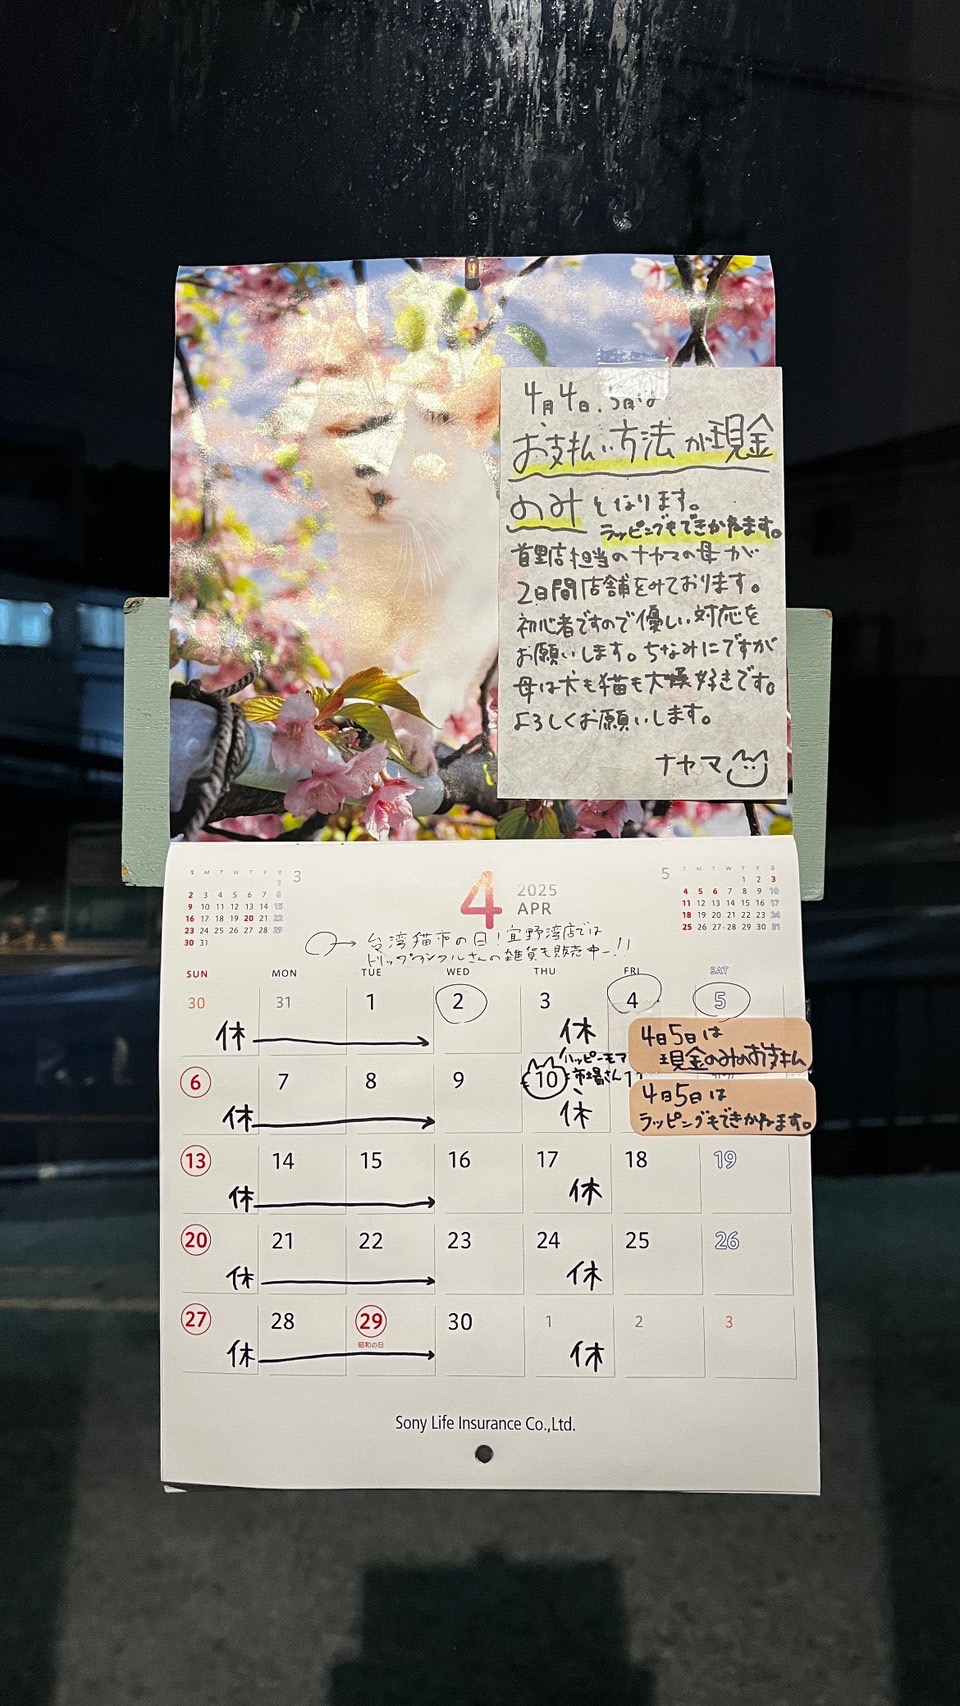 4月4日、5日は
お支払い方法が現金
のみとなります。
ラッピングもできかねます。
首里店担当のナヤマの母が
2日間店舗をみております。
初心者ですので優しい対応を
お願いします。ちなみにですが
母は犬も猫も大好きです。
よろしくお願いします。
ナヤマ
3
S M T W T F S
1
2 3 4 5 6 7 8
9 10 11 12 13 14 15
16 17 18 19 20 21 22
23 24 25 26 27 28 29
30 31
4
2025
APR
5
S M T W T F S
1 2 3
4 5 6 7 8 9 10
11 12 13 14 15 16 17
18 19 20 21 22 23 24
25 26 27 28 29 30 31
→ 台湾猫市の日!宜野湾店では
さんの雑貨も販売中ー!!
SUN MON TUE WED THU FRI SAT
30 31 1 2 3 4 5
休 → 休
4日5日は
現金のみのお支払
6 7 8 9 10 11
ハッピーモア
市場さん
休 → 休
4日5日は
ラッピングもできかねます。
13 14 15 16 17 18 19
休 → 休
20 21 22 23 24 25 26
休 → 休
27 28 29 30 1 2 3
昭和の日
休 → 休
Sony Life Insurance Co.,Ltd.